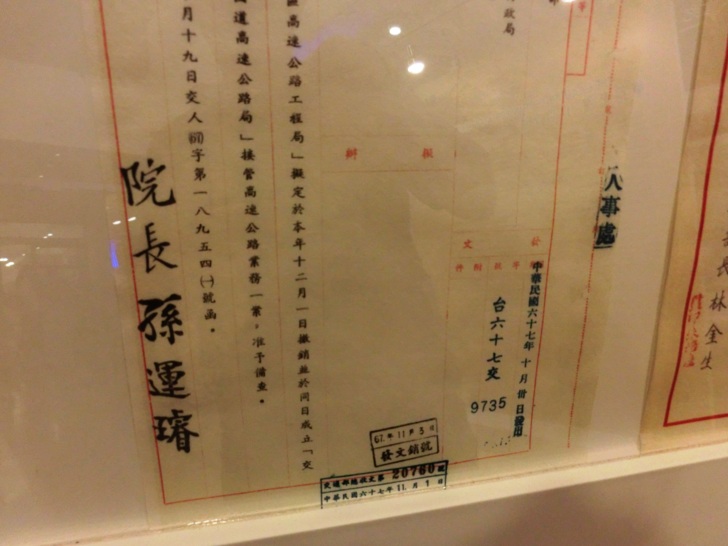 林金生
人事處
政局
擬
辦
發文
件附號字年
中華民國六十七年十月卅日發出
台六十七交
9735
區高速公路工程局」擬定於本年十二月一日撤銷並於同日成立「交
道高速公路局」接管高速公路業務一案,准予備查。
月十九日交人(67)字第一八九五四(一)號函。
院長孫運璿
67.年11月3日
發文銷號
交通部總收文第20760號
中華民國六十七年11.月1日